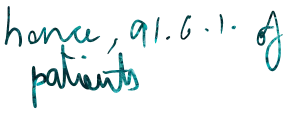 hence, 91.6.1. of
patients